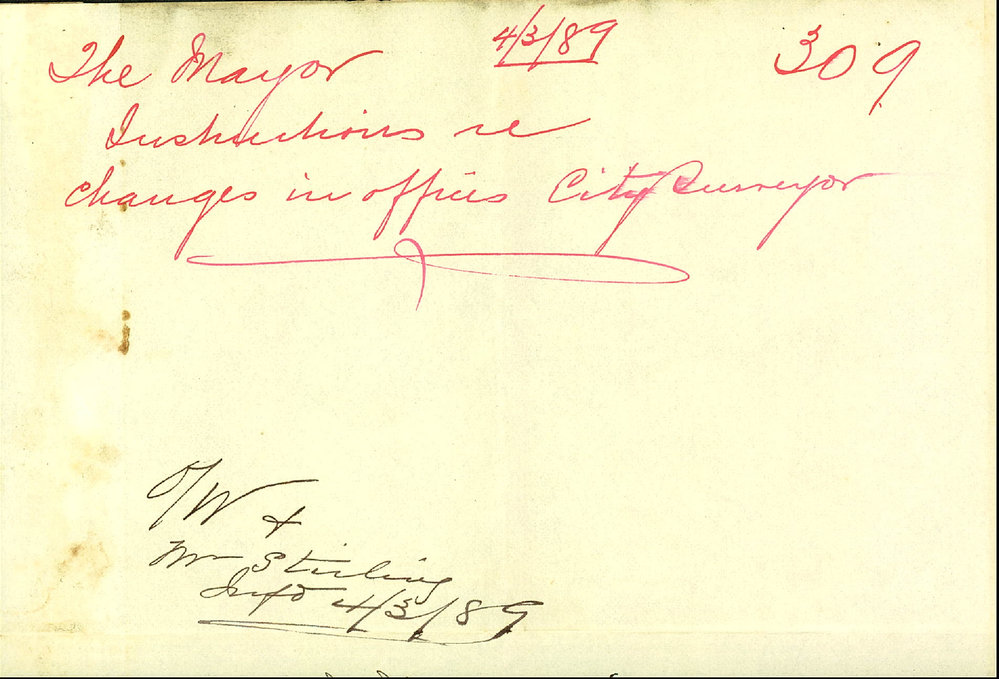 4/3/89
309
The Mayor
Instructions re
changes in offices City Surveyor
O/W +
Mr Stirling
Infd 4/3/89